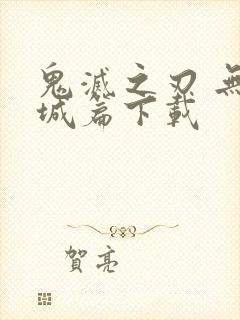 鬼滅之刃 無
城篇下載
賀亮